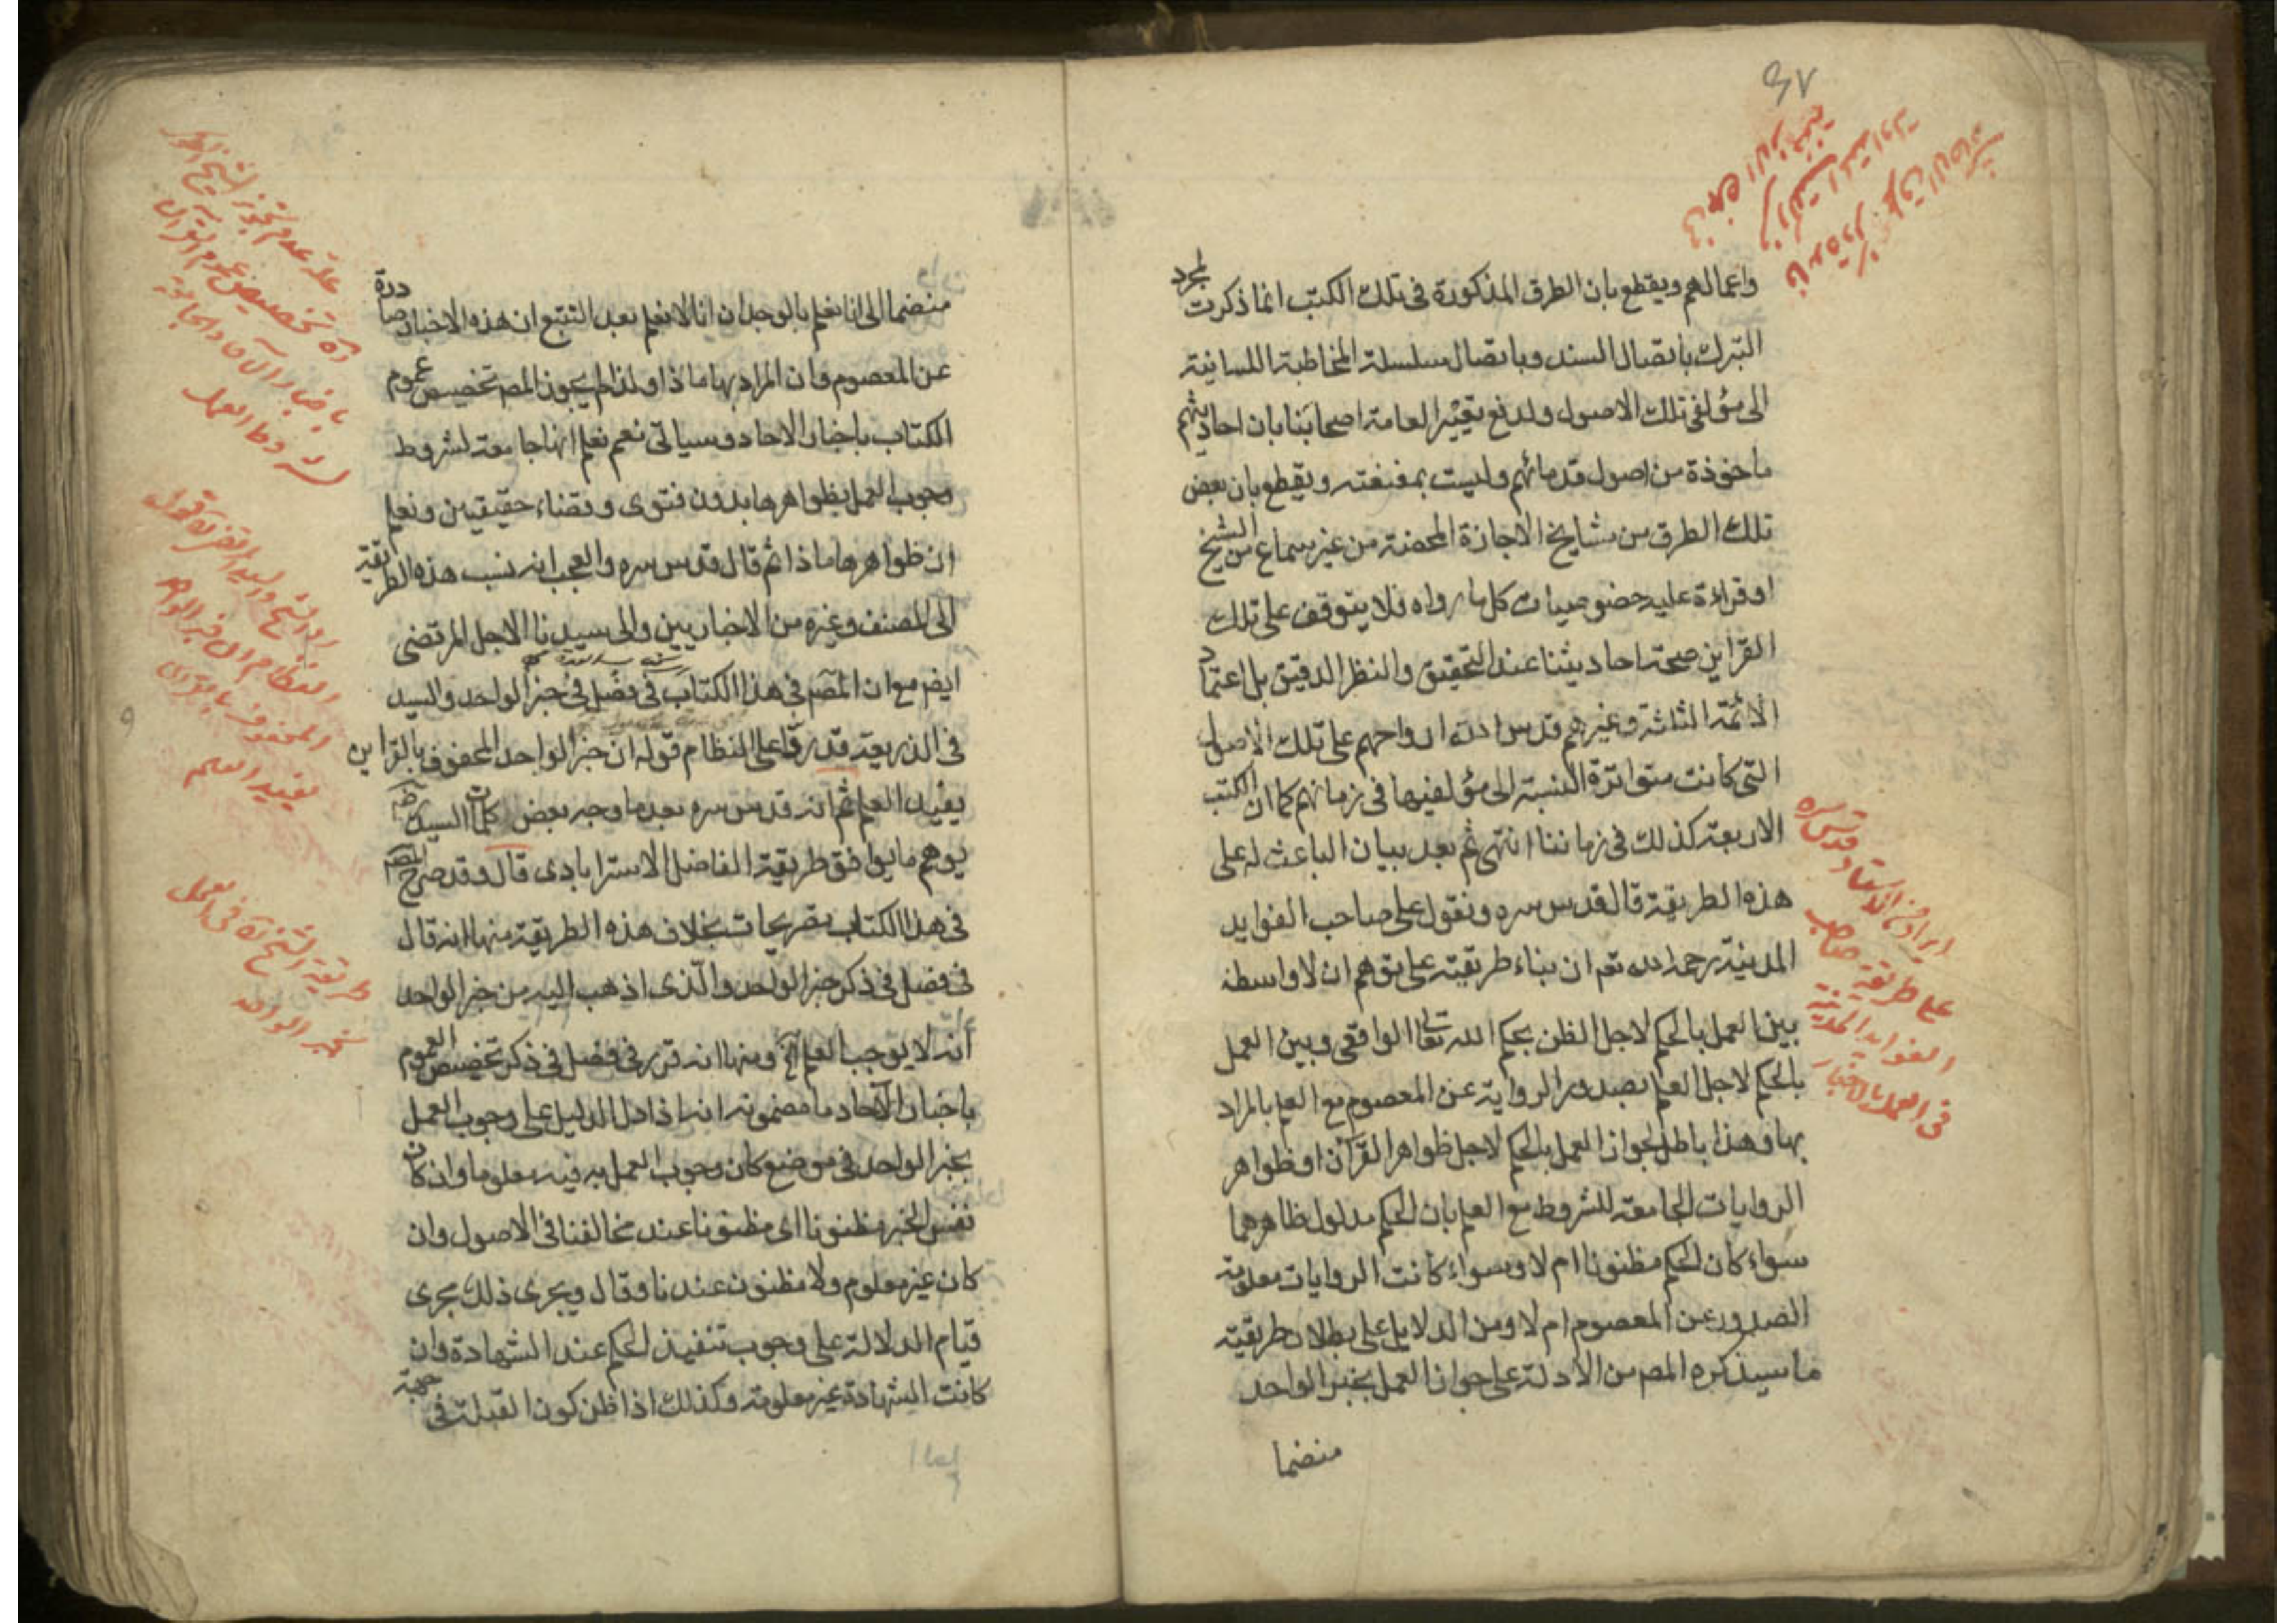 واعمالهم ويقطع بان الطرق المذكورة فى تلك الكتب انما ذكرت لمجرد
التبرك باتصال السند وباتصال سلسلة المخاطبة اللسانية
الى مؤلفى تلك الاصول ولدفع تعيير العامة اصحابنا بان احاديثهم
ماخوذة من اصول قدمائهم وليست بمعنعنة ويقطع بان بعض
تلك الطرق من مشايخ الاجازة المحضة من غير سماع من الشيخ
او قراءة عليه خصوصيات كل ما رواه فلا يتوقف على تلك
القراين صحة احاديثنا عند التحقيق والنظر الدقيق بل اعتماد
الائمة الثلثة وغيرهم قدس الله ارواحهم على تلك الاصول
التى كانت متواترة النسبة الى مؤلفيها فى زمانهم كما ان الكتب
الاربعة كذلك فى زماننا انتهى ثم بعد بيان الباعث له على
هذه الطريقة قال قدس سره ونقول على صاحب الفوايد
المدنية رحمه الله تعم ان بناء طريقته على توهم ان لا واسطة
بين العمل بالحكم لاجل الظن بحكم الله تعالى الواقعى وبين العمل
بالحكم لاجل العلم بصدور الرواية عن المعصوم مع العلم بالمراد
بها وهذا باطل لجواز العمل بالحكم لاجل ظواهر القرآن او ظواهر
الروايات الجامعة للشروط مع العلم بان الحكم مدلول ظاهرهما
سواء كان الحكم مظنونا ام لا وسواء كانت الروايات معلومة
الصدور عن المعصوم ام لا ومن الدلايل على بطلان طريقته
ما سيذكره المص من الادلة على جواز العمل بخبر الواحد
منضما
ايراد الاستاد قدس سره
على طريقة صاحب
الفوايد المدنية
فى العمل بالاخبار
منضما الى انا نعلم بالوجدان انا لا نعلم بعد التتبع ان هذه الاخبار صادرة
عن المعصوم وان المراد بها ماذا ولذا لم يجوز المص تخصيص عموم
الكتاب باخبار الاحاد وسياتى نعم نعلم انها جامعة لشروط
وجوب العمل بظواهرها بدون فتوى وقضاء حقيقيين ونعلم
ان ظواهرها ماذا ثم قال قدس سره والعجب انه نسب هذه الطريقة
الى المصنف وغيره من الاخباريين والى سيدنا الاجل المرتضى
ايضم مع ان المصم فى هذا الكتاب فى فصل فى خبر الواحد والسيد
فى الذريعة قد ردا على النظام قوله ان خبر الواحد المحفوف بالقراين
يفيد العلم ثم انه قدس سره بعد ما وجه بعض كلمات السيد
يوهم ما يوافق طريقة الفاضل الاسترابادى قال وقد صرح المصم
فى هذا الكتاب بتصريحات بخلاف هذه الطريقة منها انه قال
فى فصل فى ذكر خبر الواحد والذى اذهب اليه من خبر الواحد
انه لا يوجب العلم الخ ومنها انه قرر فى فصل فى ذكر تخصيص العموم
باخبار الآحاد ما مضمونه انه اذا دل الدليل على وجوب العمل
بخبر الواحد فى موضع كان وجوب العمل به فيه معلوما وان كان
نفس الخبر مظنونا اى مظنونا عند مخالفنا فى الاصول وان
كان غير معلوم ولا مظنون عندنا وقال ويجرى ذلك مجرى
قيام الدلالة على وجوب تنفيذ الحكم عند الشهادة وان
كانت الشهادة غير معلومة وكذلك اذا ظن كون القبلة فى جهة
علة عدم تجويز الشيخ
ره تخصيص عموم القرآن
باخبار الآحاد
لشروط العمل
رد الشيخ والسيد المرتضى ره قول
النظام ان خبر الواحد
المحفوف بالقراين
يفيد العلم
طريقة الشيخ ره فى العمل
بخبر الواحد